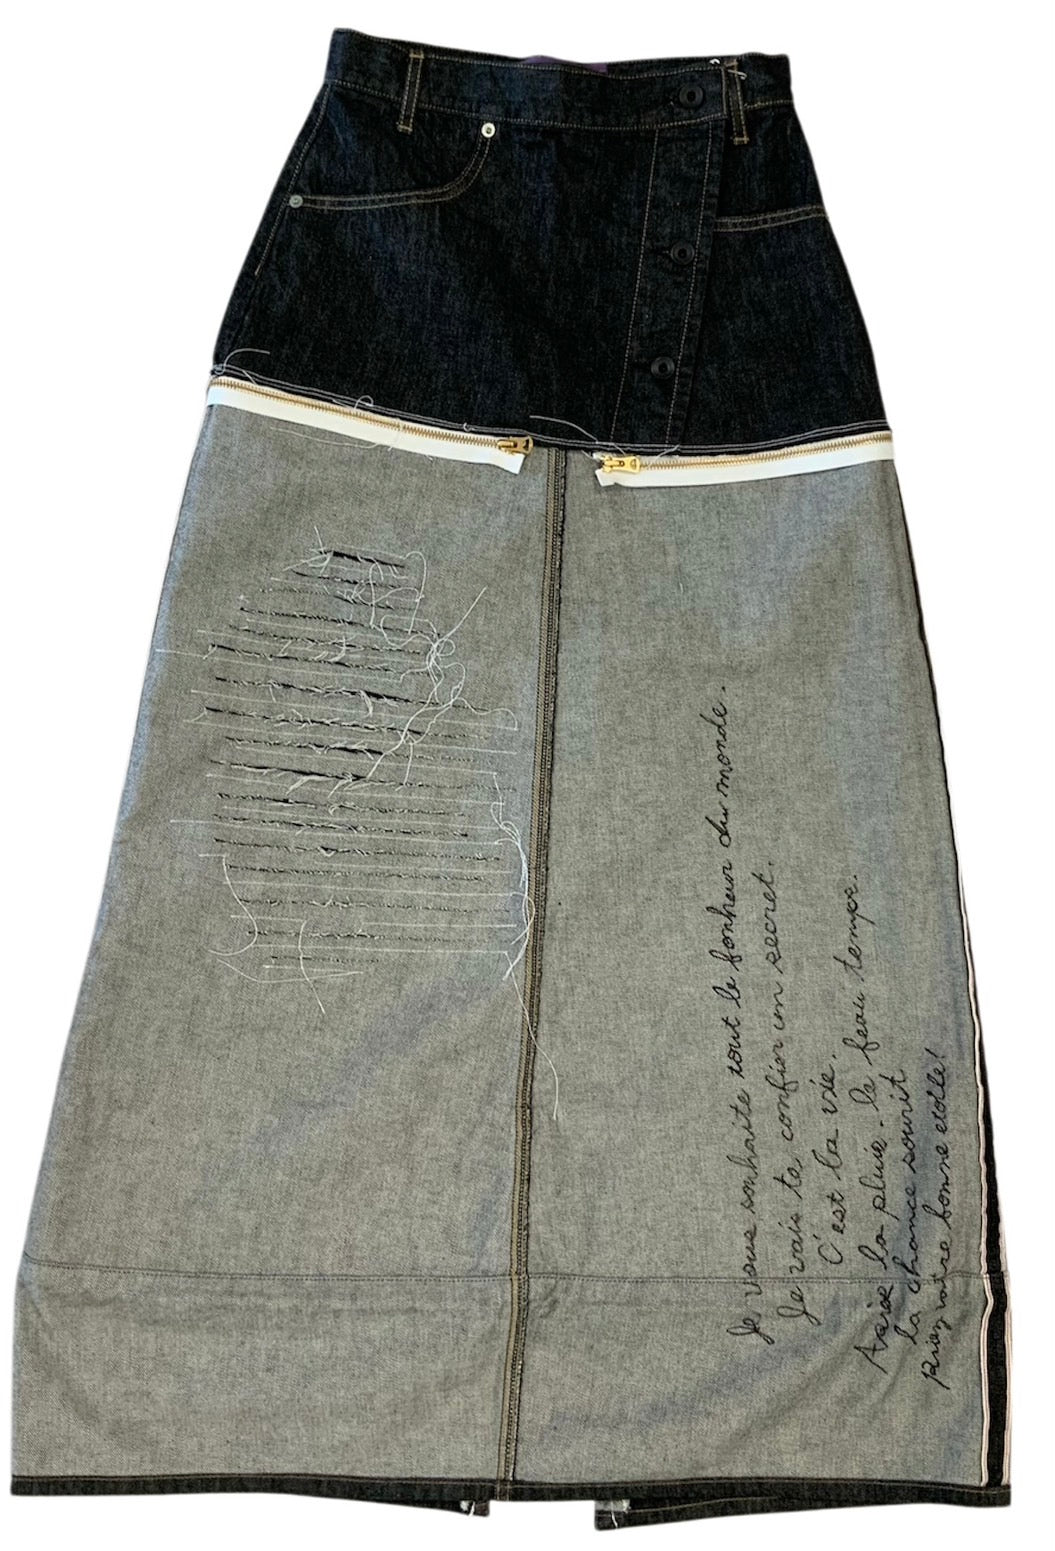 Je vous souhaite tout le bonheur du monde.
Je vais te confier un secret.
C'est la vie.
Après la pluie. le beau temps.
la chance sourit
Priez votre bonne etoile!